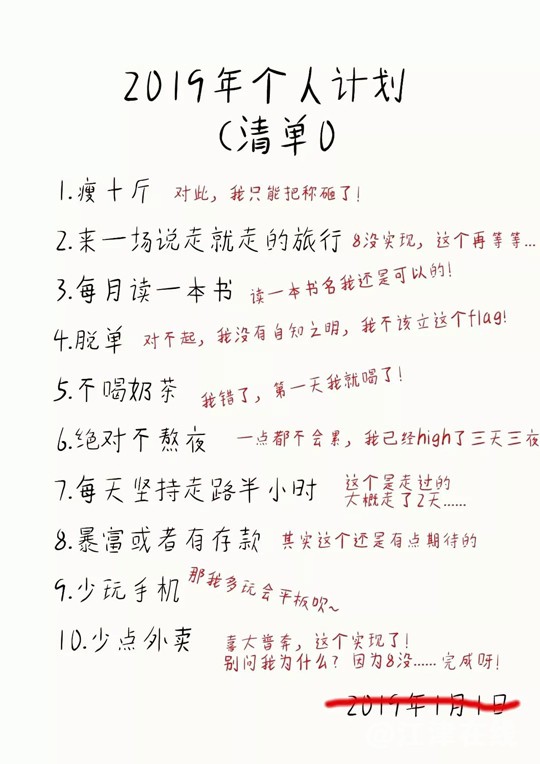 2019年个人计划
(清单()
1.瘦十斤 对此，我只能把称砸了！
2.来一场说走就走的旅行 8没实现，这个再等等...
3.每月读一本书 读一本书名我还是可以的！
4.脱单 对不起，我没有自知之明，我不该立这个flag！
5.不喝奶茶 我错了，第一天我就喝了！
6.绝对不熬夜 一点都不会累，我已经high了三天三夜
7.每天坚持走路半小时 这个是走过的
大概走了2天......
8.暴富或者有存款 其实这个还是有点期待的
9.少玩手机 那我多玩会平板呗~
10.少点外卖 喜大普奔，这个实现了！
别问我为什么？因为8没......完成呀！
2019年1月1日